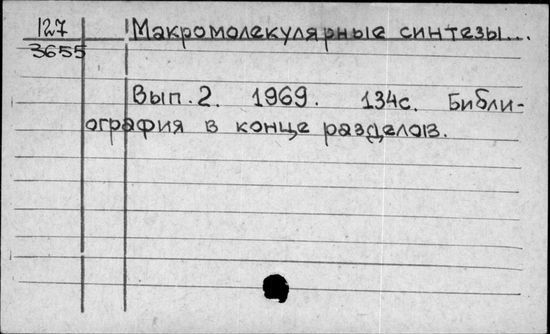 127 Макромолекулярные синтезы...
3655
Вып. 2. 1969. 134с. Библи-
ография в конце разделов.